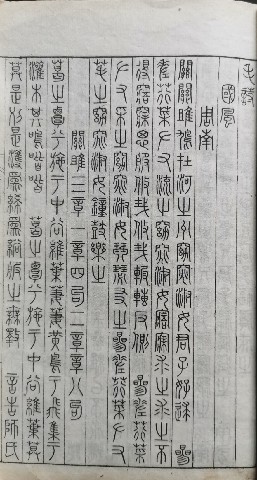 毛詩
國風
周南
關關雎鳩在河之州窈窕淑女君子好逑 參
差荇菜左右流之窈窕淑女寤寐求之求之不
得寤寐思服悠哉悠哉輾轉反側 參差荇菜左
右采之窈窕淑女琴瑟友之參差荇菜左右
芼之窈窕淑女鐘鼓樂之
關雎三章一章四句二章章八句
葛之覃兮施于中谷維葉萋萋黃鳥于飛集于
灌木其鳴喈喈 葛之覃兮施于中谷維葉莫
莫是刈是濩為絺為綌服之無斁 言告師氏